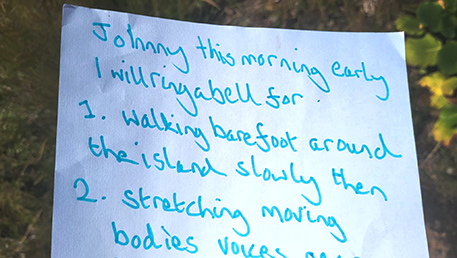 Johnny this morning early
I will ring a bell for.
1. walking barefoot around
the island slowly then
2. stretching moving
bodies voices